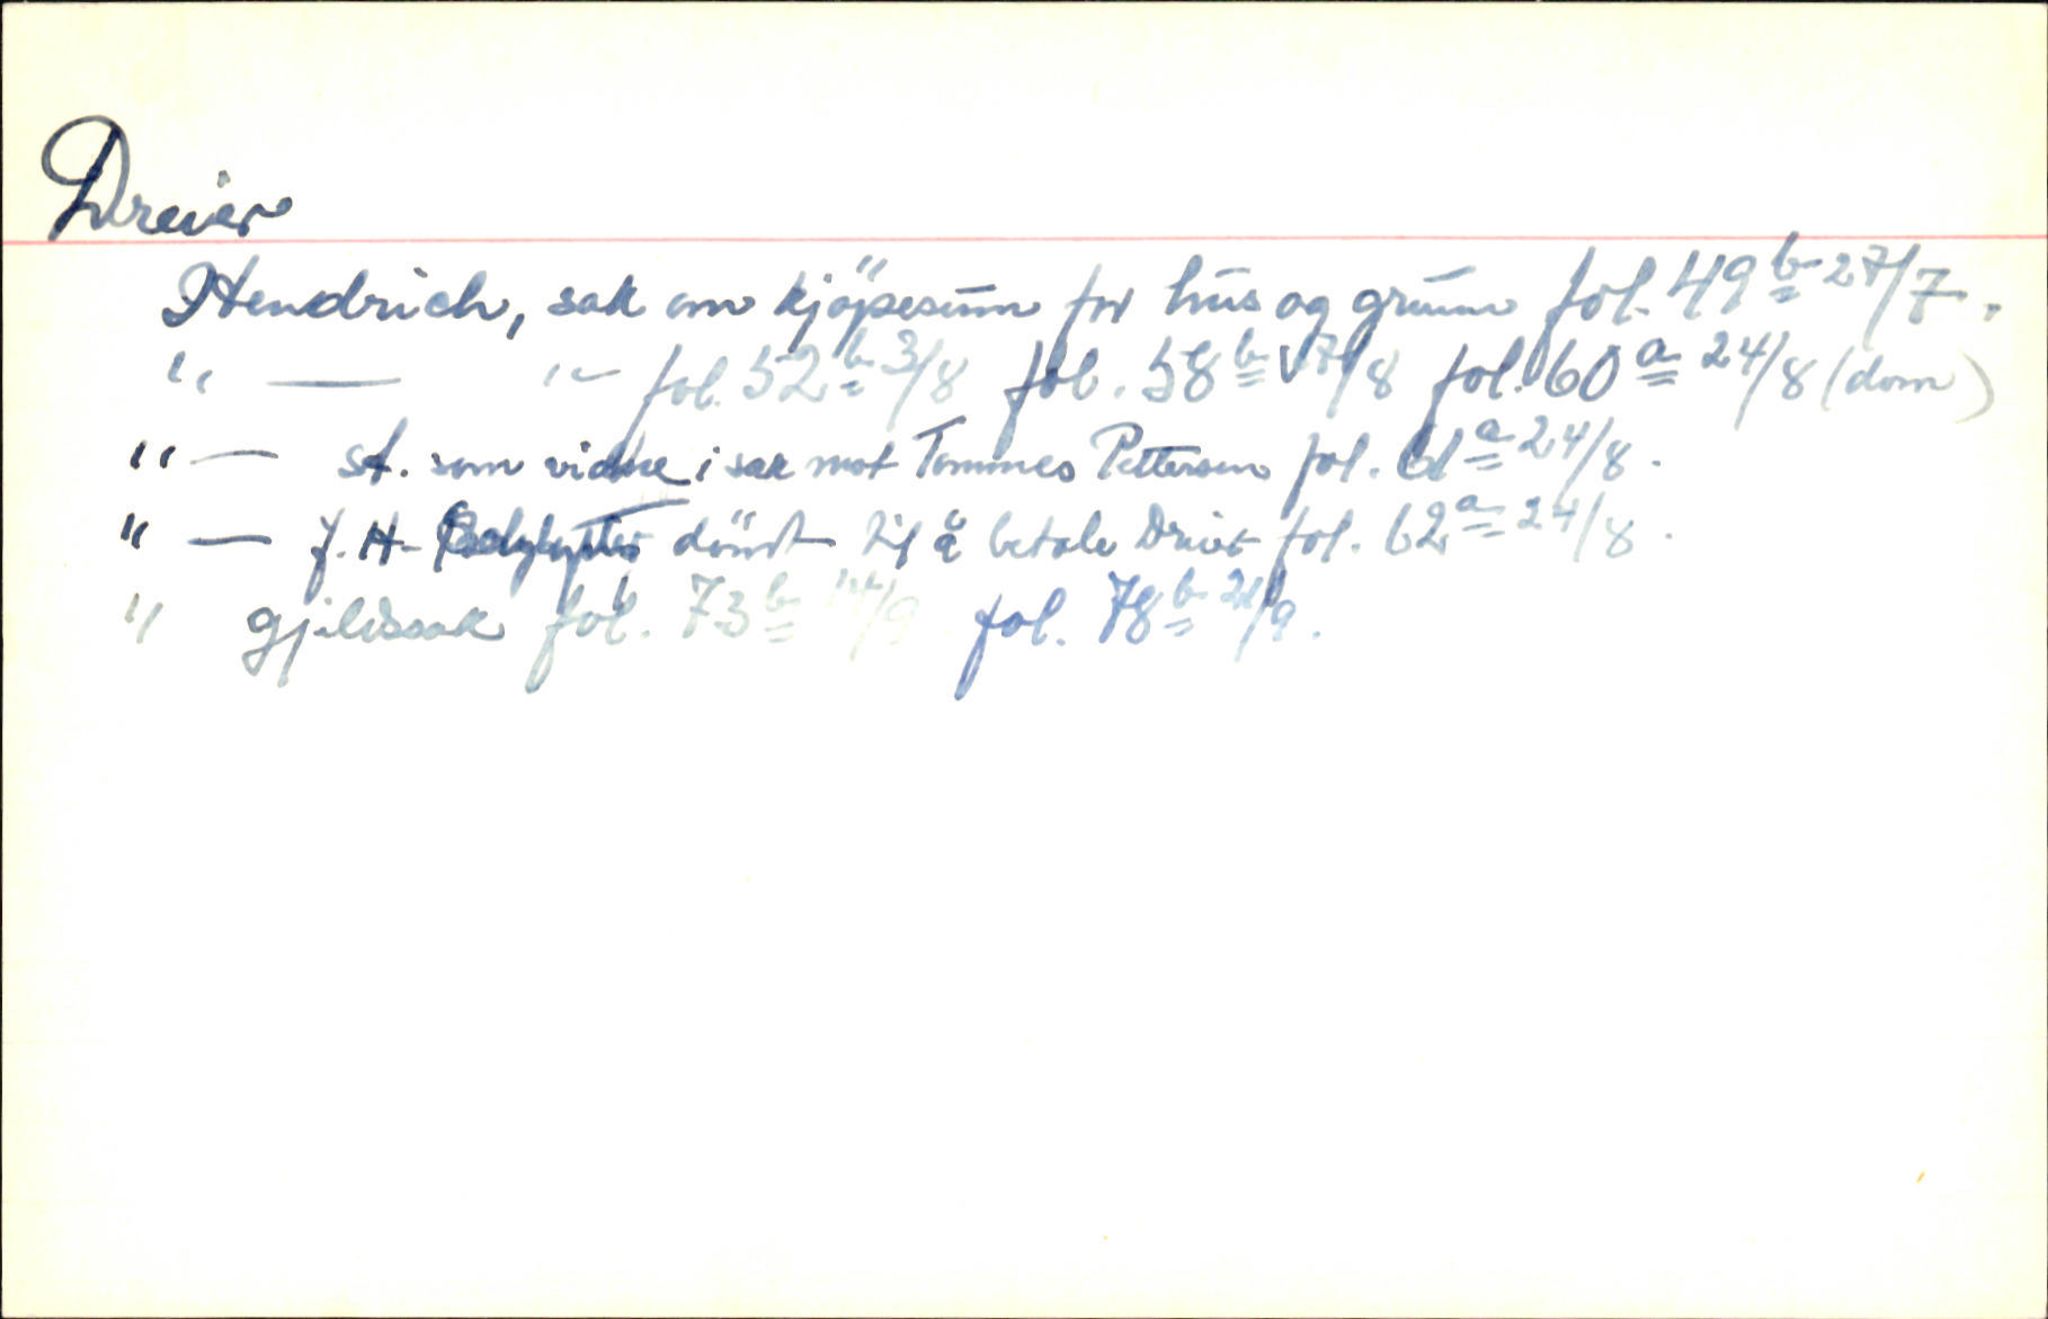 Dreier
Hendrich, sak om kjöpesum for hus og grunn fol. 49b 27/7.
" — "— fol. 52b 3/8 fol. 58b 17/8 fol. 60a 24/8 (dom)
" — st. som vidne i sak mot Tommes Pettersen fol. 61a 24/8.
" — J. H. dömt til å betale Dreier fol. 62a 24/8.
" gjeldssak fol. 73b 14/9 fol. 78b 21/9.